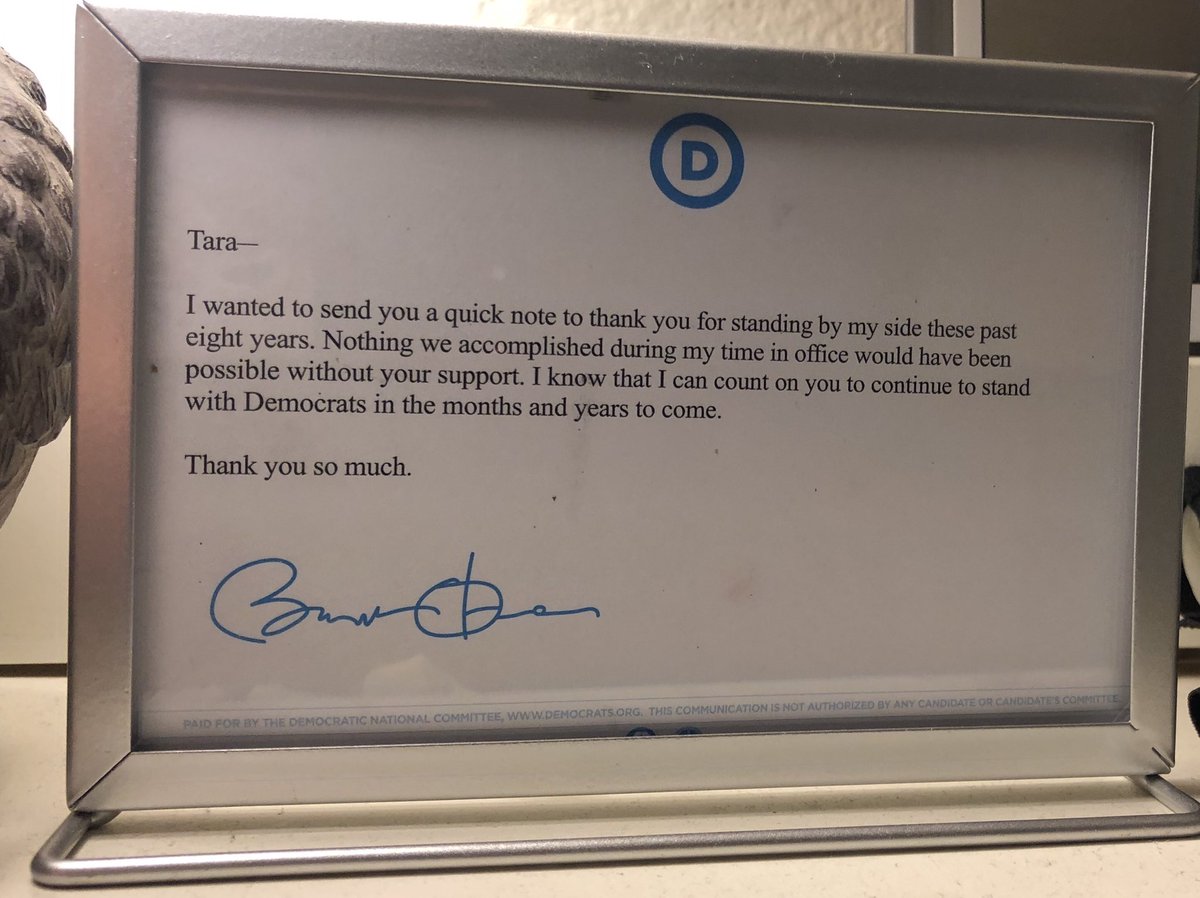 D
Tara—
I wanted to send you a quick note to thank you for standing by my side these past
eight years. Nothing we accomplished during my time in office would have been
possible without your support. I know that I can count on you to continue to stand
with Democrats in the months and years to come.
Thank you so much.
PAID FOR BY THE DEMOCRATIC NATIONAL COMMITTEE, WWW.DEMOCRATS.ORG. THIS COMMUNICATION IS NOT AUTHORIZED BY ANY CANDIDATE OR CANDIDATE'S COMMITTEE.